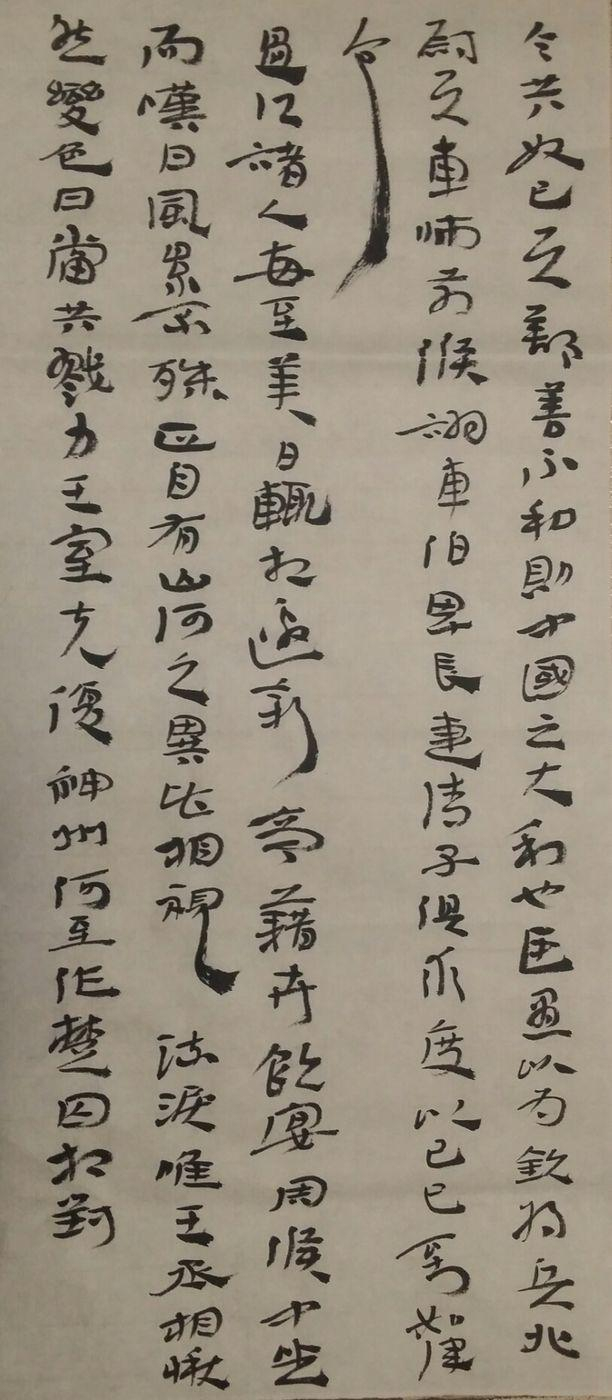 令共奴已又鄯善不和則中國之大利也臣愚以為欽將兵北
尉又車師前侯詡車伯畢長連清子俱求度以己巳到如律
令
過江諸人每至美日輒相邀新亭藉卉飲宴周侯中坐
而嘆曰風景不殊正自有山河之異皆相視流淚唯王丞相愀
然變色曰當共戮力王室克復神州何至作楚囚相對